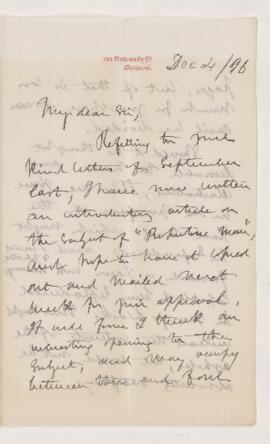 University St
Montreal.
Dec 4/96
My dear Sir,
Referring to your
kind letter of September
last, I have now written
an introductory article on
the subject of " man",
and hope to have it copied
out and mailed next
week for your approval.
It will form I think an
interesting opening to the
subject, and may occupy
between three and four